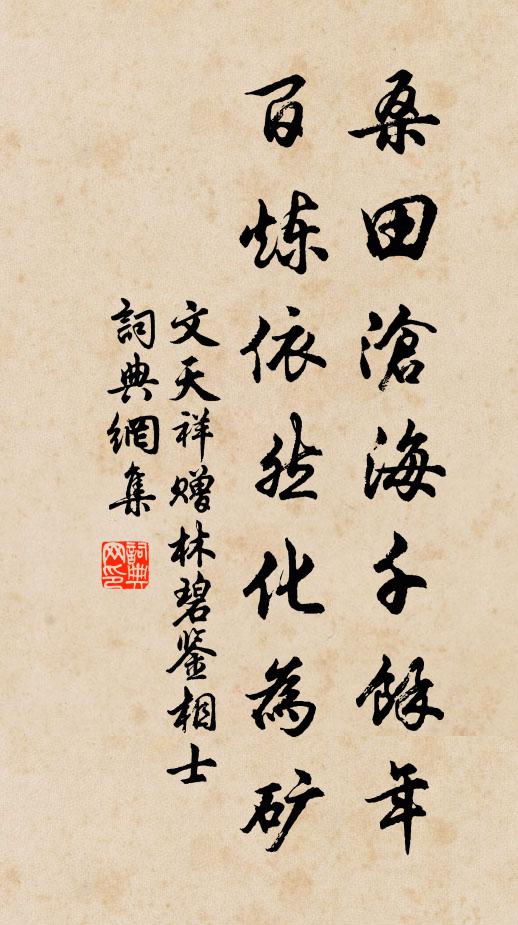 桑田滄海千餘年
百炼依然化為矿
文天祥赠林碧鉴相士
詞典網集
詞典网印